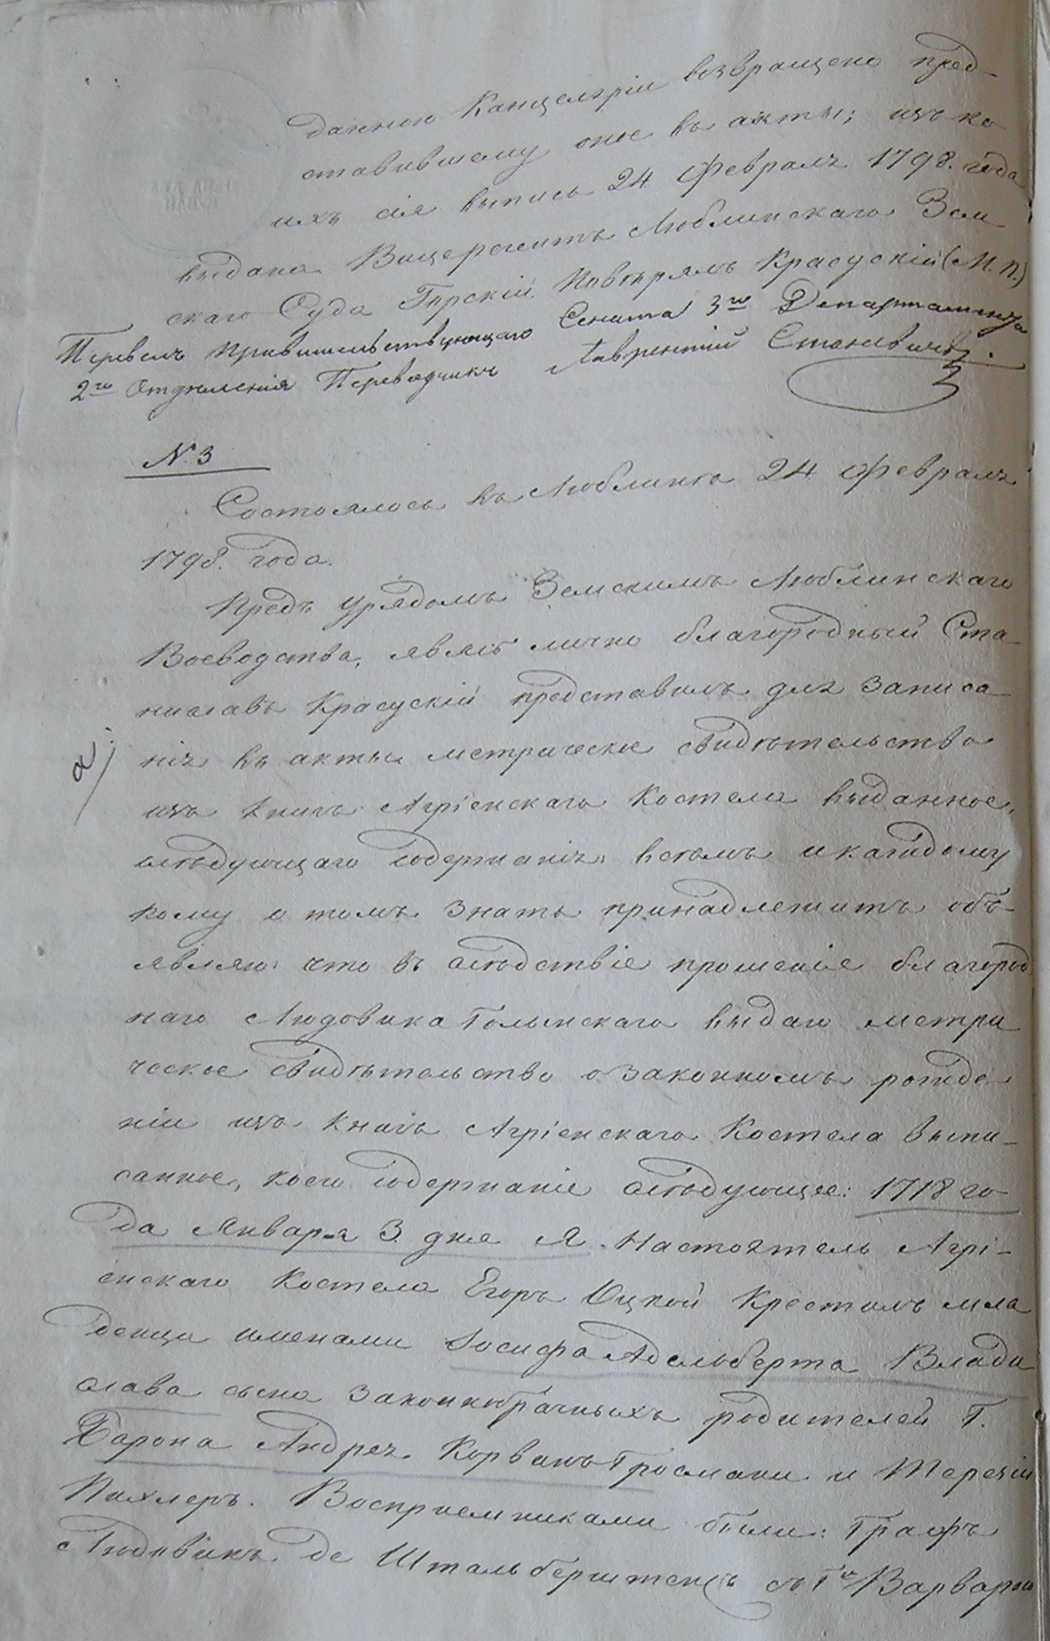 данною Канцеляріи возвращено пред-
ставившему оные въ акты; изъ ко
ихъ сія выпись 24 Февраля 1798. года
выдана. Вицерегентъ Люблинскаго Зем
скаго Суда Гурскій Повѣрялъ Красускій (М. П.)
Перевелъ Правительствующаго Сената 3го Департамента
2го Отдѣленія Переводчикъ Лаврентій Станевичъ.
N. 3
Состоялось въ Люблинѣ 24 Февраля
1798. года.
Предъ Урядомъ Земскимъ Люблинскаго
Воеводства, явясь лично благородный Ста-
ниславъ Красускій представилъ для записа-
нія въ акты метрическое свидѣтельство
изъ книгъ Агріенскаго Костела выданное,
слѣдующаго содержанія: всѣмъ и каждому
кому о томъ знать принадлежитъ объ-
являю: что въ слѣдствіе прошеніе благород
наго Людовика Голынскаго выдаю метри
ческое свидѣтельство о законномъ рожде
ніи изъ книгъ Агріенскаго Костела выпи-
санное, коего содержаніе слѣдующее: 1718 го-
да Января 3. дня Я. Настоятель Агрі-
енскаго Костела Егоръ Крестилъ мла
денца именами Іосифа Адельберта Влади
слава сына законнобрачныхъ родителей Г.
Барона Андрея Корвинъ Гросмани и Терезіи
Пихлеръ. Воспріемниками были: Графъ
Людовикъ де съ Гю Варварою